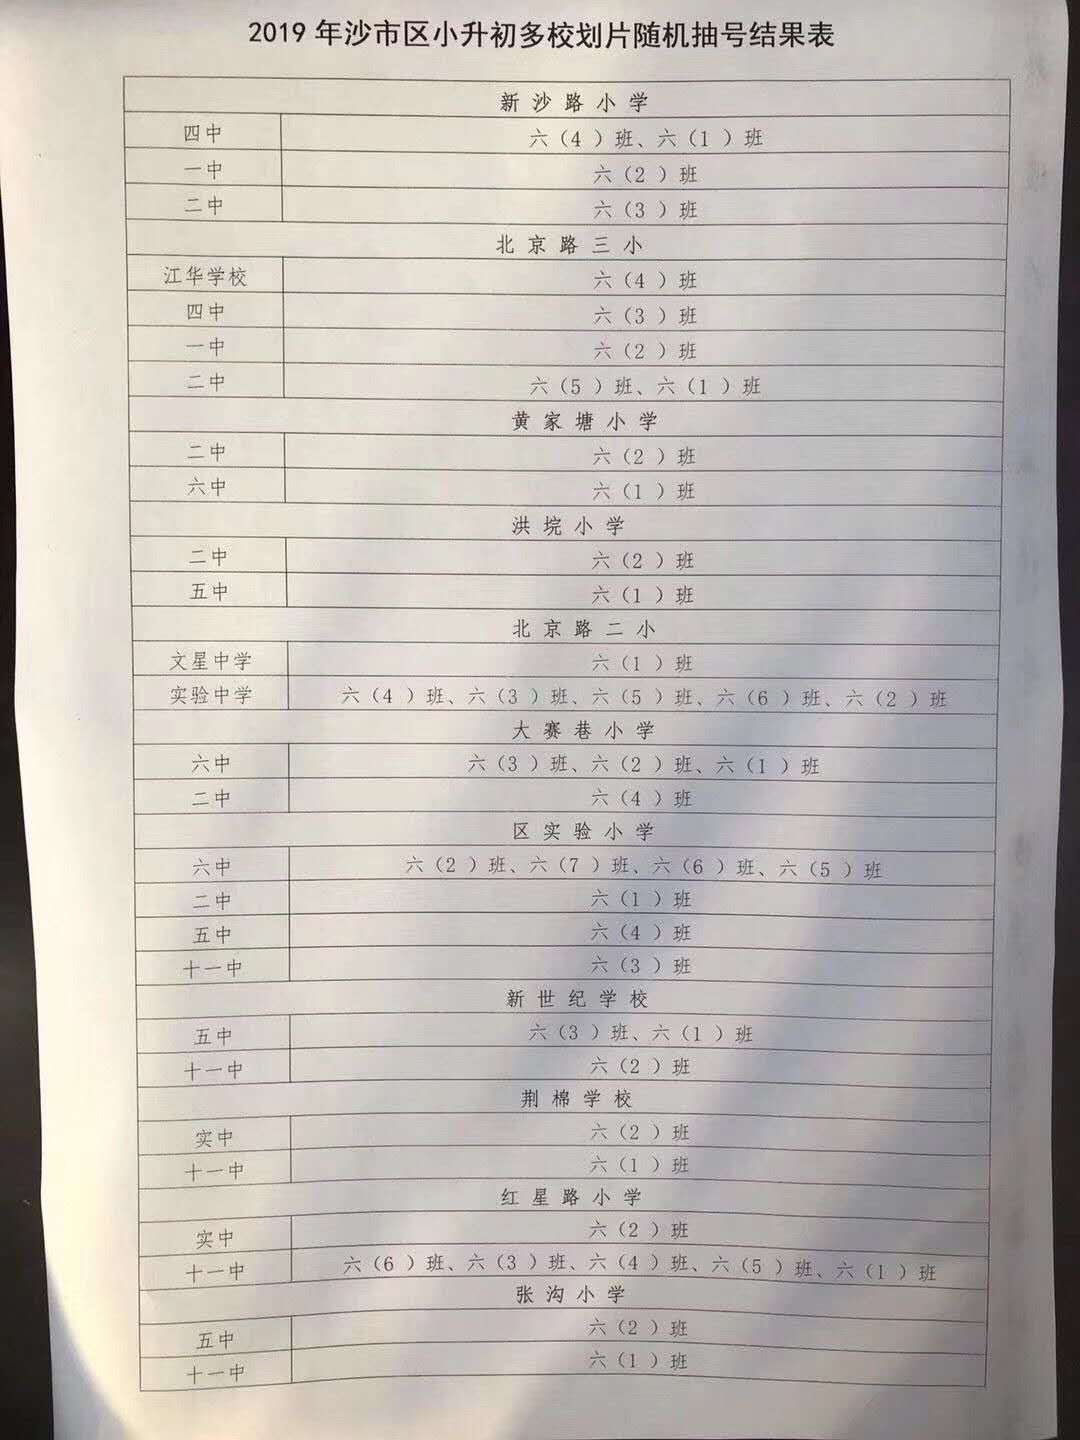 2019 年沙市区小升初多校划片随机抽号结果表
新沙路小学
四中 六（4 ）班、六（1 ）班
一中 六（2 ）班
二中 六（3 ）班
北京路三小
江华学校 六（4 ）班
四中 六（3 ）班
一中 六（2 ）班
二中 六（5 ）班、六（1 ）班
黄家塘小学
二中 六（2 ）班
六中 六（1 ）班
洪垸小学
二中 六（2 ）班
五中 六（1 ）班
北京路二小
文星中学 六（1 ）班
实验中学 六（4 ）班、六（3 ）班、六（5 ）班、六（6 ）班、六（2 ）班
大赛巷小学
六中 六（3 ）班、六（2 ）班、六（1 ）班
二中 六（4 ）班
区实验小学
六中 六（2 ）班、六（7 ）班、六（6 ）班、六（5 ）班
二中 六（1 ）班
五中 六（4 ）班
十一中 六（3 ）班
新世纪学校
五中 六（3 ）班、六（1 ）班
十一中 六（2 ）班
荆棉学校
实中 六（2 ）班
十一中 六（1 ）班
红星路小学
实中 六（2 ）班
十一中 六（6 ）班、六（3 ）班、六（4 ）班、六（5 ）班、六（1 ）班
张沟小学
五中 六（2 ）班
十一中 六（1 ）班